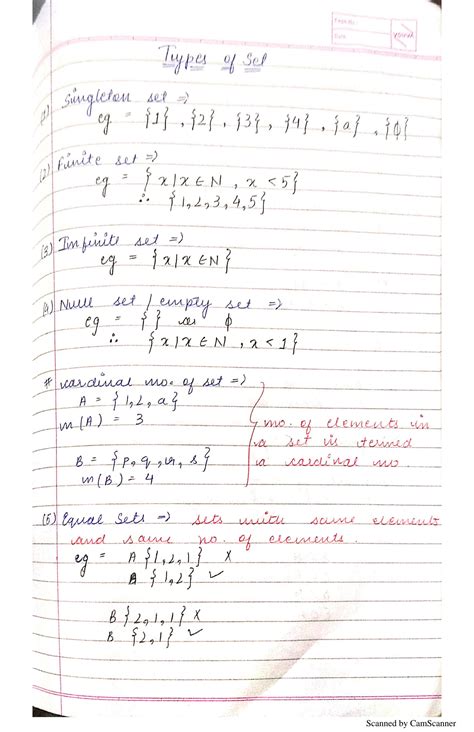 Page No.
Date
YOUVA
Types of Set
(1) Singleton set ⇒
eg = {1} , {2} , {3} , {4} , {a} , {ϕ}
(2) Finite set ⇒
eg = { x/x ∈ N , x < 5}
∴ {1, 2, 3, 4, 5}
(3) Infinite set ⇒
eg = {x/x ∈ N}
(4) Null set / empty set ⇒
eg = { } or ϕ
∴ {x/x ∈ N , x < 1}
# cardinal no. of set ⇒
A = {1, 2, a}
n(A) = 3
no. of elements in
a set is termed
a cardinal no.
B = {p, q, r, s}
n(B) = 4
(5) Equal Sets ⇒ sets with same elements
and same no. of elements.
eg = A {1, 2, 1} ×
A {1, 2} ✓
B {2, 1, 1} ×
B {2, 1} ✓
Scanned by CamScanner